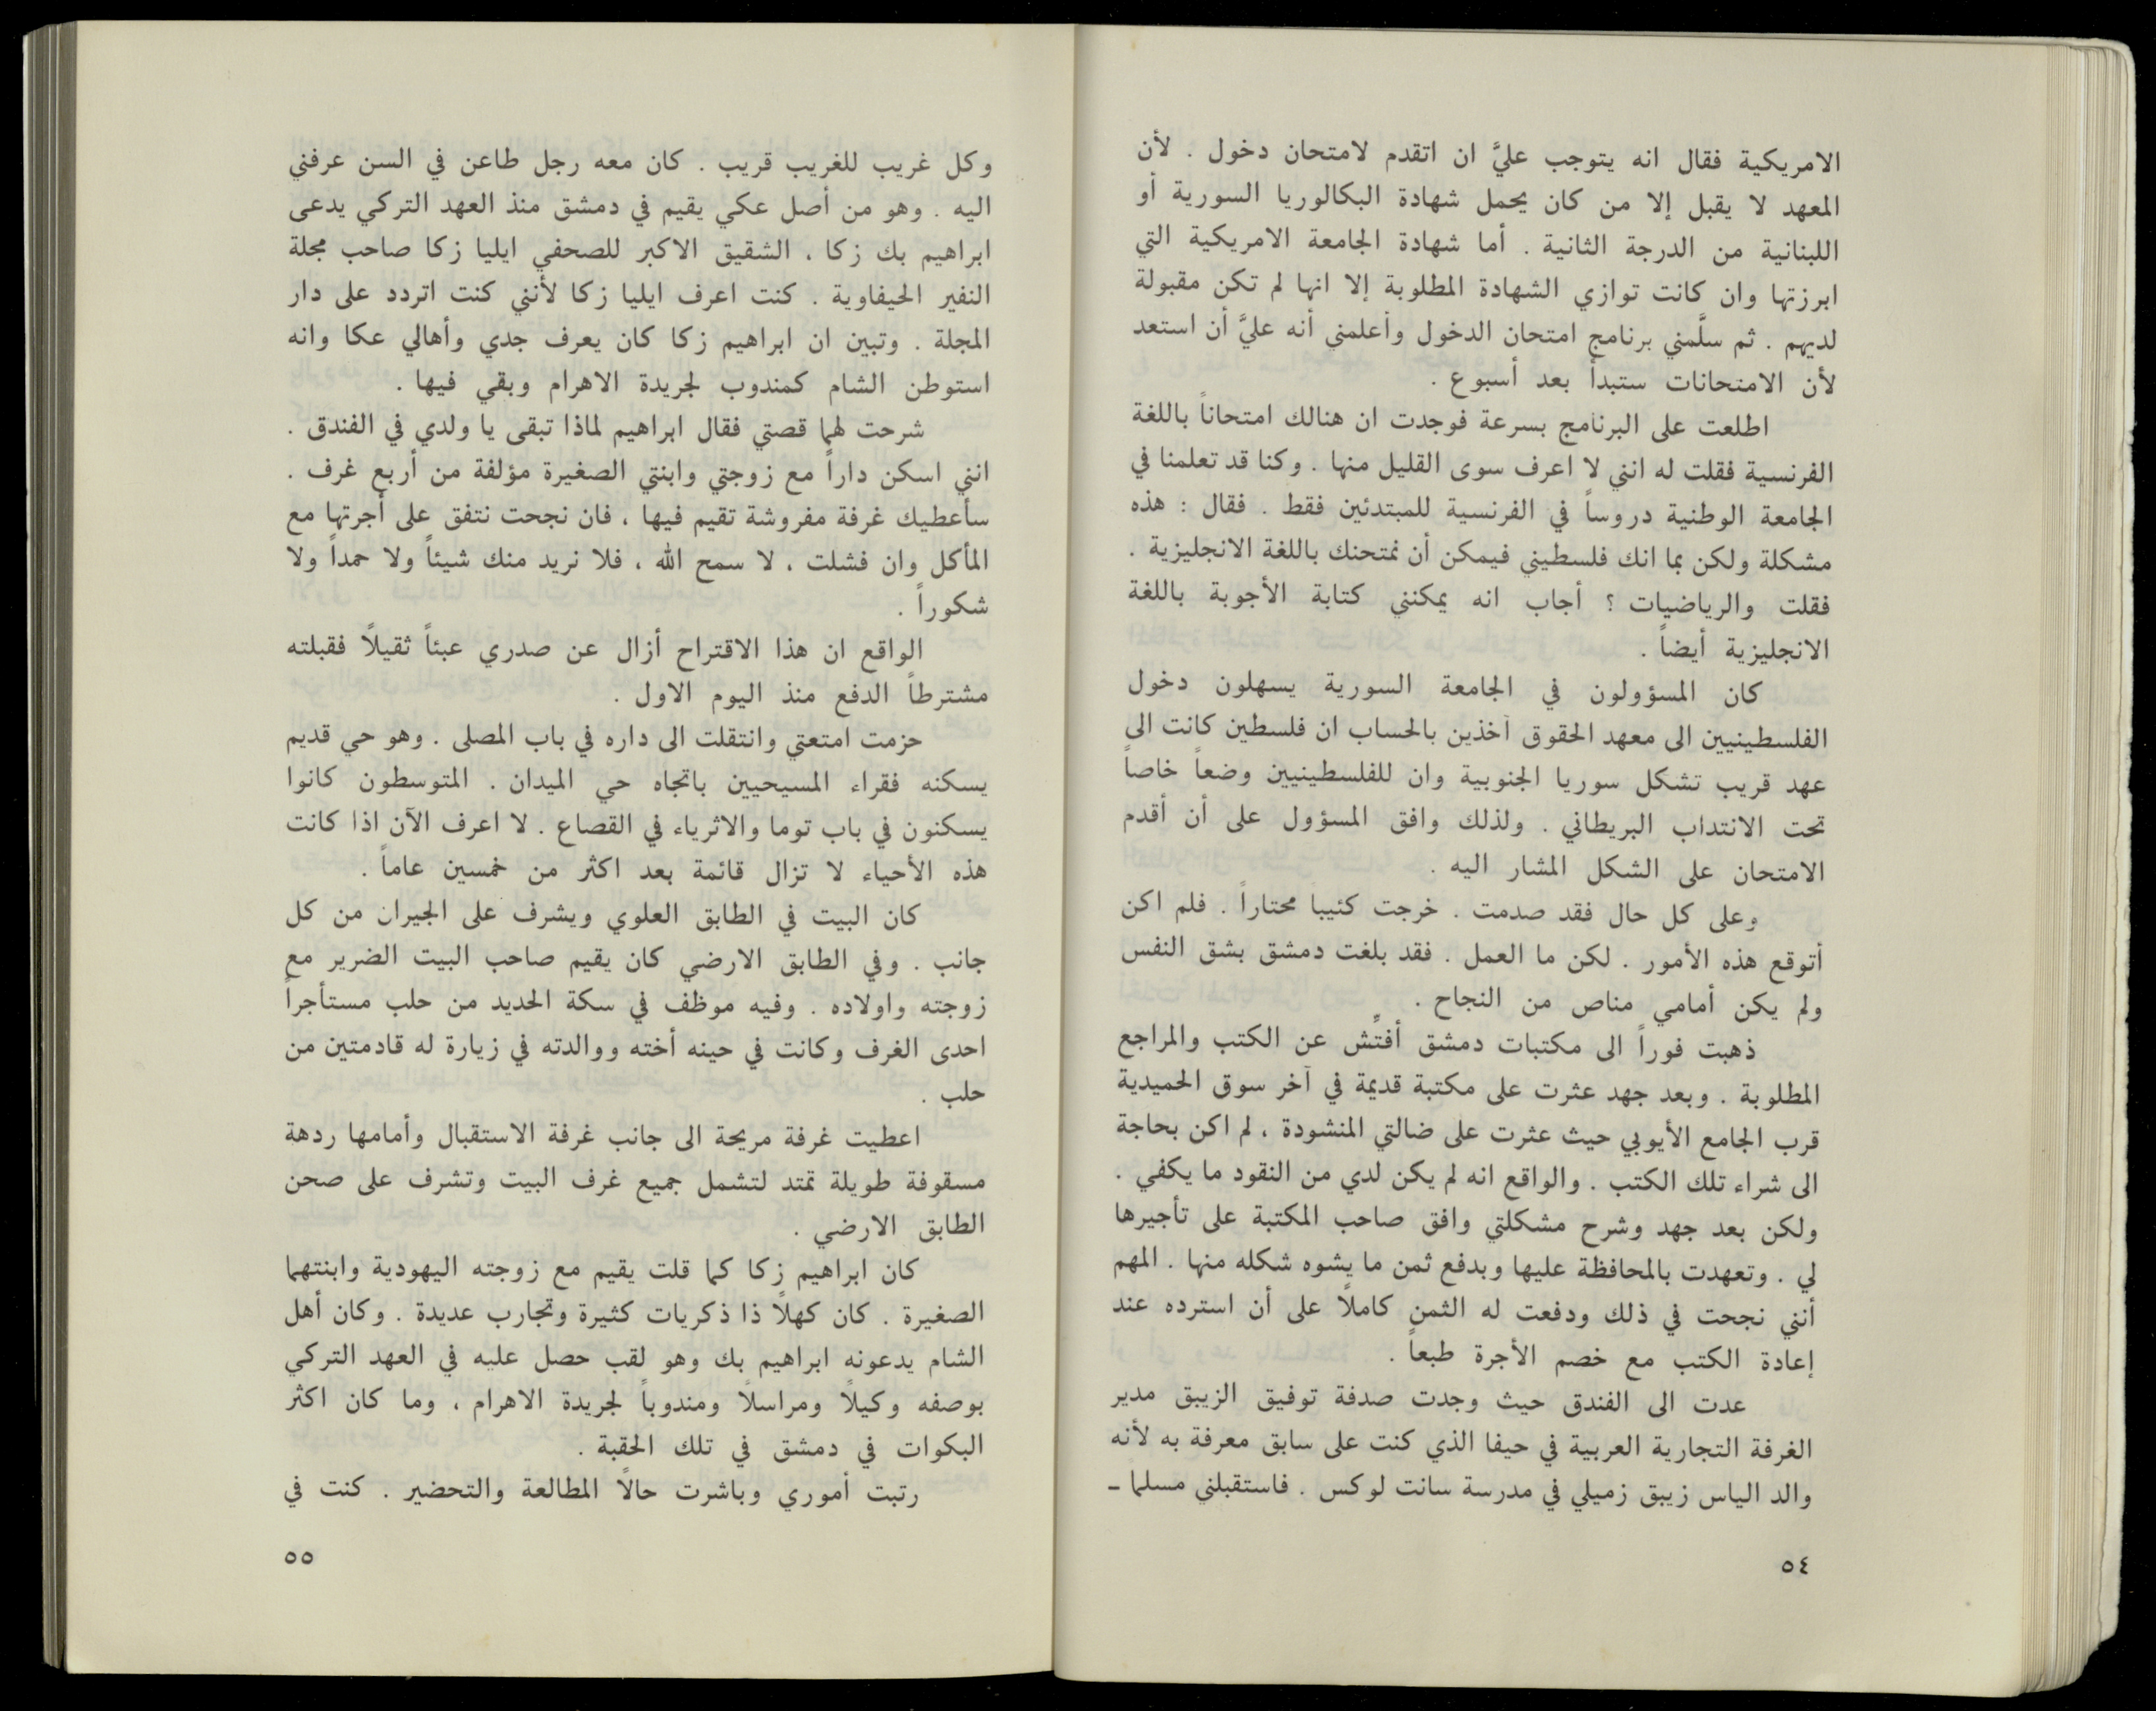 الامريكية فقال انه يتوجب عليَّ ان اتقدم لامتحان دخول . لأن
المعهد لا يقبل إلا من كان يحمل شهادة البكالوريا السورية أو
اللبنانية من الدرجة الثانية . أما شهادة الجامعة الامريكية التي
ابرزتها وان كانت توازي الشهادة المطلوبة إلا انها لم تكن مقبولة
لديهم . ثم سلَّمني برنامج امتحان الدخول وأعلمني أنه عليَّ أن استعد
لأن الامتحانات ستبدأ بعد أسبوع .
اطلعت على البرنامج بسرعة فوجدت ان هنالك امتحاناً باللغة
الفرنسية فقلت له انني لا اعرف سوى القليل منها . وكنا قد تعلمنا في
الجامعة الوطنية دروساً في الفرنسية للمبتدئين فقط . فقال : هذه
مشكلة ولكن بما انك فلسطيني فيمكن أن نمتحنك باللغة الانجليزية .
فقلت والرياضيات ؟ أجاب انه يمكنني كتابة الأجوبة باللغة
الانجليزية أيضاً .
كان المسؤولون في الجامعة السورية يسهلون دخول
الفلسطينيين الى معهد الحقوق آخذين بالحساب ان فلسطين كانت الى
عهد قريب تشكل سوريا الجنوبية وان للفلسطينيين وضعاً خاصاً
تحت الانتداب البريطاني . ولذلك وافق المسؤول على أن أقدم
الامتحان على الشكل المشار اليه .
وعلى كل حال فقد صدمت . خرجت كئيبا محتاراً . فلم اكن
أتوقع هذه الأمور . لكن ما العمل . فقد بلغت دمشق بشق النفس
ولم يكن أمامي مناص من النجاح .
ذهبت فوراً الى مكتبات دمشق أفتِّش عن الكتب والمراجع
المطلوبة . وبعد جهد عثرت على مكتبة قديمة في آخر سوق الحميدية
قرب الجامع الأيوبي حيث عثرت على ضالتي المنشودة ، لم اكن بحاجة
الى شراء تلك الكتب . والواقع انه لم يكن لدي من النقود ما يكفي .
ولكن بعد جهد وشرح مشكلتي وافق صاحب المكتبة على تأجيرها
لي . وتعهدت بالمحافظة عليها وبدفع ثمن ما يشوه شكله منها . المهم
أنني نجحت في ذلك ودفعت له الثمن كاملاً على أن استرده عند
إعادة الكتب مع خصم الأجرة طبعاً .
عدت الى الفندق حيث وجدت صدفة توفيق الزيبق مدير
الغرفة التجارية العربية في حيفا الذي كنت على سابق معرفة به لأنه
والد الياس زيبق زميلي في مدرسة سانت لوكس . فاستقبلني مسلماً ـ
٥٤
وكل غريب للغريب قريب . كان معه رجل طاعن في السن عرفني
اليه . وهو من أصل عكي يقيم في دمشق منذ العهد التركي يدعى
ابراهيم بك زكا ، الشقيق الاكبر للصحفي ايليا زكا صاحب مجلة
النفير الحيفاوية . كنت اعرف ايليا زكا لأنني كنت اتردد على دار
المجلة . وتبين ان ابراهيم زكا كان يعرف جدي وأهالي عكا وانه
استوطن الشام كمندوب لجريدة الاهرام وبقي فيها .
شرحت لهما قصتي فقال ابراهيم لماذا تبقى يا ولدي في الفندق .
انني اسكن داراً مع زوجتي وابنتي الصغيرة مؤلفة من أربع غرف .
سأعطيك غرفة مفروشة تقيم فيها ، فان نجحت نتفق على أجرتها مع
المأكل وان فشلت ، لا سمح الله ، فلا نريد منك شيئاً ولا حمداً ولا
شكوراً .
الواقع ان هذا الاقتراح أزال عن صدري عبئاً ثقيلاً فقبلته
مشترطاً الدفع منذ اليوم الاول .
حزمت امتعتي وانتقلت الى داره في باب المصلى . وهو حي قديم
يسكنه فقراء المسيحيين باتجاه حي الميدان . المتوسطون كانوا
يسكنون في باب توما والاثرياء في القصاع . لا اعرف الآن اذا كانت
هذه الأحياء لا تزال قائمة بعد اكثر من خمسين عاماً .
كان البيت في الطابق العلوي ويشرف على الجيران من كل
جانب . وفي الطابق الارضي كان يقيم صاحب البيت الضرير مع
زوجته واولاده . وفيه موظف في سكة الحديد من حلب مستأجراً
احدى الغرف وكانت في حينه أخته ووالدته في زيارة له قادمتين من
حلب .
اعطيت غرفة مريحة الى جانب غرفة الاستقبال وأمامها ردهة
مسقوفة طويلة تمتد لتشمل جميع غرف البيت وتشرف على صحن
الطابق الارضي .
كان ابراهيم زكا كما قلت يقيم مع زوجته اليهودية وابنتهما
الصغيرة . كان كهلاً ذا ذكريات كثيرة وتجارب عديدة . وكان أهل
الشام يدعونه ابراهيم بك وهو لقب حصل عليه في العهد التركي
بوصفه وكيلاً ومراسلاً ومندوباً لجريدة الاهرام ، وما كان اكثر
البكوات في دمشق في تلك الحقبة .
رتبت أموري وباشرت حالاً المطالعة والتحضير . كنت في
٥٥